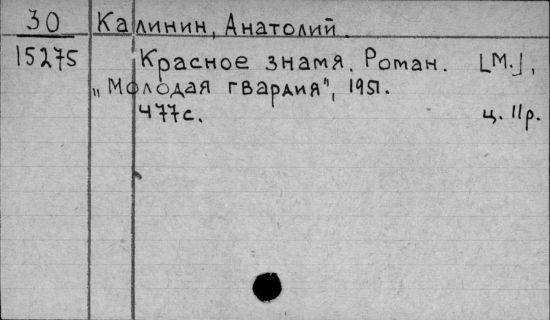 30 Калинин, Анатолий.
15275 Красное знамя. Роман. [М.],
„Молодая гвардия", 1951.
477с. ц. 11р.